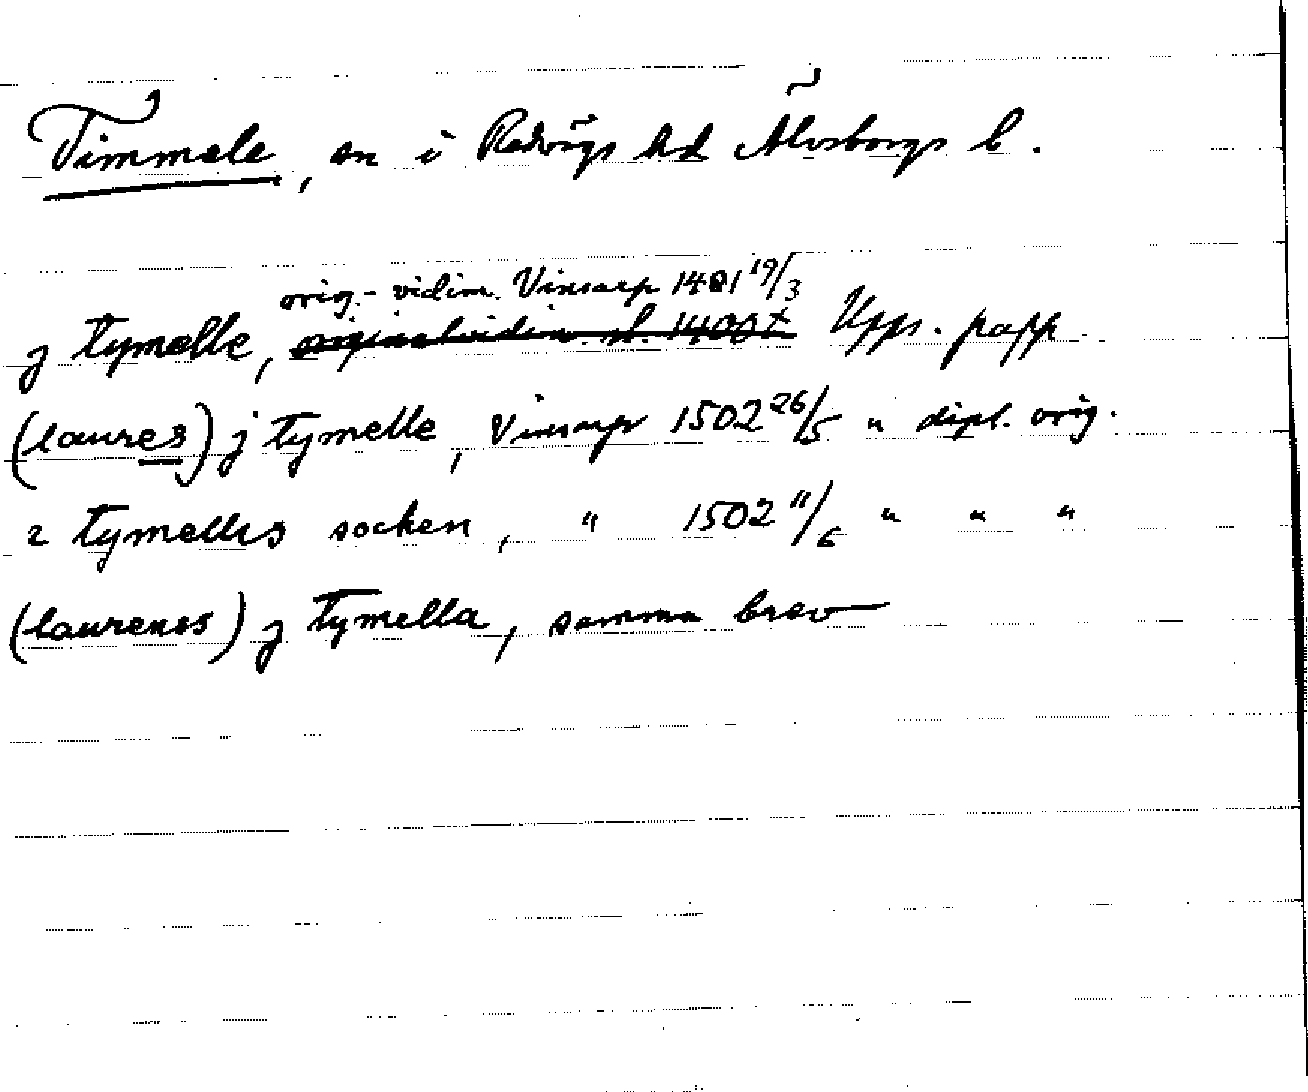 Timmele, sn i Redvägs hd Älvsborgs l.
orig.-vidim. Vinsarp 1481 19/3
j tymelle, Upps. papp
(laures) j tymelle, Vinsarp 1502 26/5 " dipl. orig.
z tymellis socken, " 1502 11/6 " " "
(laurenes) j tymella, samma brev